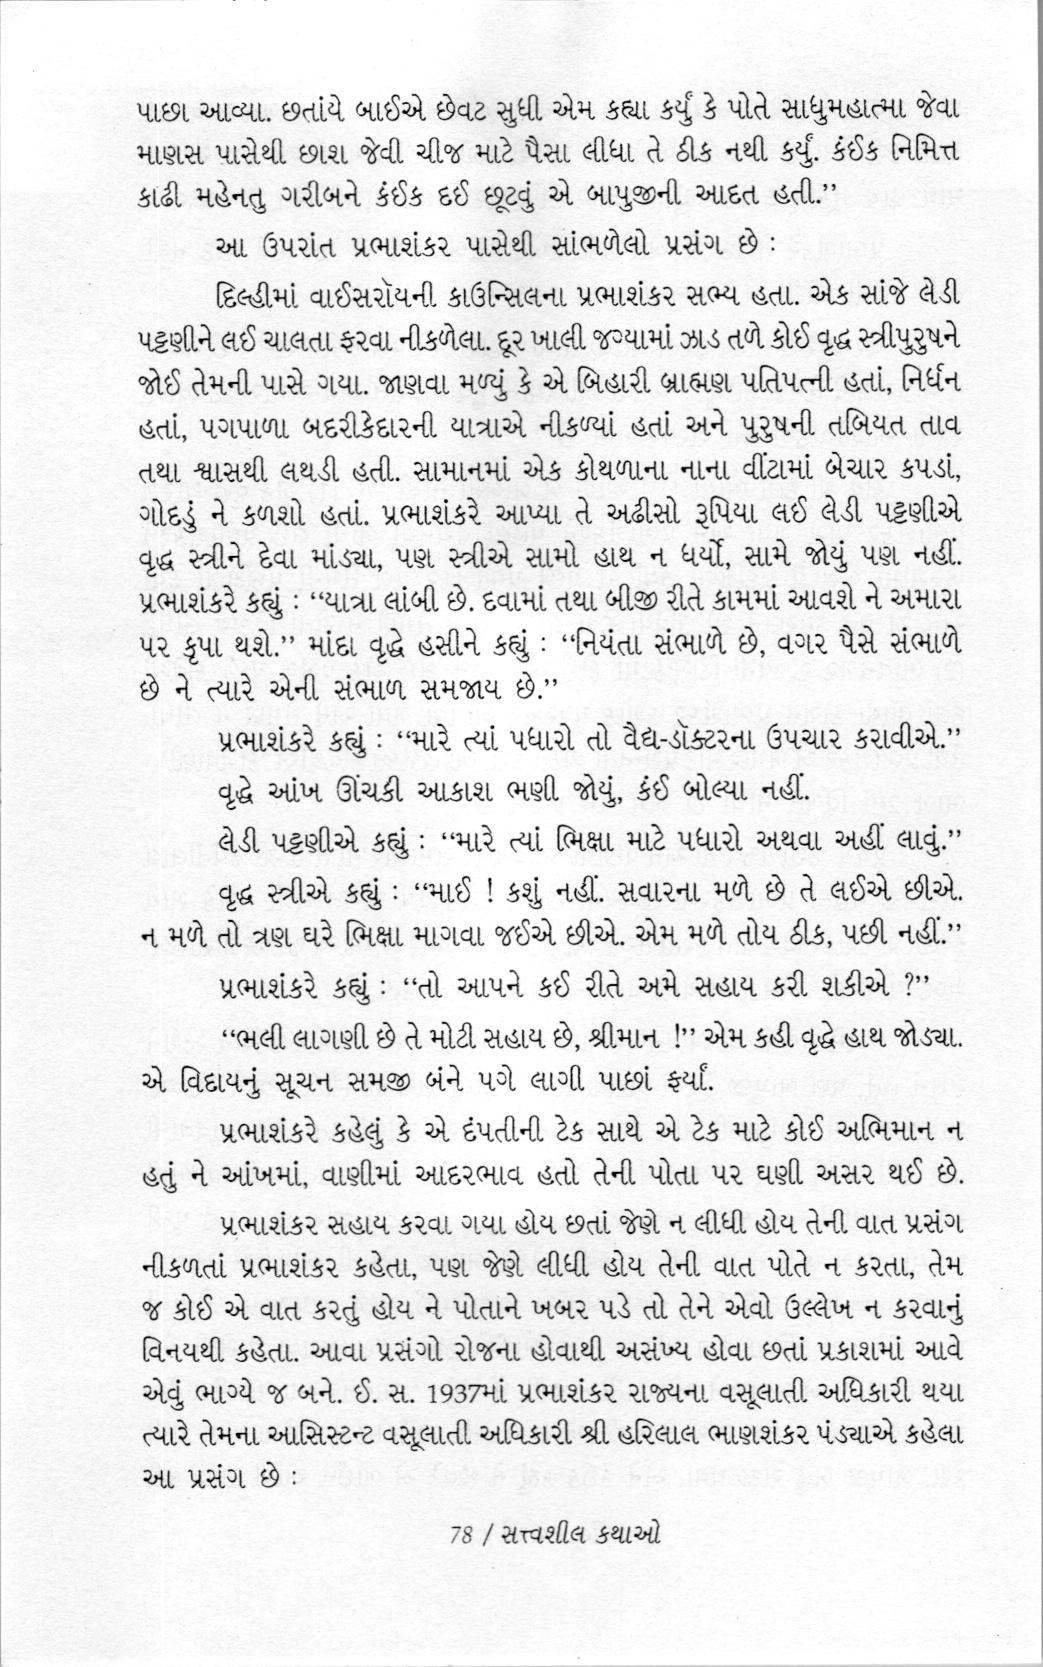 પાછા આવ્યા. છતાંયે બાઈએ છેવટ સુધી એમ કહ્યા કર્યું કે પોતે સાધુમહાત્મા જેવા
માણસ પાસેથી છાશ જેવી ચીજ માટે પૈસા લીધા તે ઠીક નથી કર્યું. કંઈક નિમિત્ત
કાઢી મહેનતુ ગરીબને કંઈક દઈ છૂટવું એ બાપુજીની આદત હતી.”
આ ઉપરાંત પ્રભાશંકર પાસેથી સાંભળેલો પ્રસંગ છે :
દિલ્હીમાં વાઈસરૉયની કાઉન્સિલના પ્રભાશંકર સભ્ય હતા. એક સાંજે લેડી
પટ્ટણીને લઈ ચાલતા ફરવા નીકળેલા. દૂર ખાલી જગ્યામાં ઝાડ તળે કોઈ વૃદ્ધ સ્ત્રીપુરુષને
જોઈ તેમની પાસે ગયા. જાણવા મળ્યું કે એ બિહારી બ્રાહ્મણ પતિપત્ની હતાં, નિર્ધન
હતાં, પગપાળા બદરીકેદારની યાત્રાએ નીકળ્યાં હતાં અને પુરુષની તબિયત તાવ
તથા શ્વાસથી લથડી હતી. સામાનમાં એક કોથળાના નાના વીંટામાં બેચાર કપડાં,
ગોદડું ને કળશો હતાં. પ્રભાશંકરે આપ્યા તે અઢીસો રૂપિયા લઈ લેડી પટ્ટણીએ
વૃદ્ધ સ્ત્રીને દેવા માંડ્યા, પણ સ્ત્રીએ સામો હાથ ન ધર્યો, સામે જોયું પણ નહીં.
પ્રભાશંકરે કહ્યું : “યાત્રા લાંબી છે. દવામાં તથા બીજી રીતે કામમાં આવશે ને અમારા
પર કૃપા થશે.” માંદા વૃદ્ધે હસીને કહ્યું : “નિયંતા સંભાળે છે, વગર પૈસે સંભાળે
છે ને ત્યારે એની સંભાળ સમજાય છે.”
પ્રભાશંકરે કહ્યું : “મારે ત્યાં પધારો તો વૈદ્ય-ડૉક્ટરના ઉપચાર કરાવીએ.”
વૃદ્ધે આંખ ઊંચકી આકાશ ભણી જોયું, કંઈ બોલ્યા નહીં.
લેડી પટ્ટણીએ કહ્યું : “મારે ત્યાં ભિક્ષા માટે પધારો અથવા અહીં લાવું.”
વૃદ્ધ સ્ત્રીએ કહ્યું : “માઈ ! કશું નહીં. સવારના મળે છે તે લઈએ છીએ.
ન મળે તો ત્રણ ઘરે ભિક્ષા માગવા જઈએ છીએ. એમ મળે તોય ઠીક, પછી નહીં.”
પ્રભાશંકરે કહ્યું : “તો આપને કઈ રીતે અમે સહાય કરી શકીએ ?”
“ભલી લાગણી છે તે મોટી સહાય છે, શ્રીમાન !” એમ કહી વૃદ્ધે હાથ જોડ્યા.
એ વિદાયનું સૂચન સમજી બંને પગે લાગી પાછાં ફર્યાં.
પ્રભાશંકરે કહેલું કે એ દંપતીની ટેક સાથે એ ટેક માટે કોઈ અભિમાન ન
હતું ને આંખમાં, વાણીમાં આદરભાવ હતો તેની પોતા પર ઘણી અસર થઈ છે.
પ્રભાશંકર સહાય કરવા ગયા હોય છતાં જેણે ન લીધી હોય તેની વાત પ્રસંગ
નીકળતાં પ્રભાશંકર કહેતા, પણ જેણે લીધી હોય તેની વાત પોતે ન કરતા, તેમ
જ કોઈ એ વાત કરતું હોય ને પોતાને ખબર પડે તો તેને એવો ઉલ્લેખ ન કરવાનું
વિનયથી કહેતા. આવા પ્રસંગો રોજના હોવાથી અસંખ્ય હોવા છતાં પ્રકાશમાં આવે
એવું ભાગ્યે જ બને. ઈ. સ. 1937માં પ્રભાશંકર રાજ્યના વસૂલાતી અધિકારી થયા
ત્યારે તેમના આસિસ્ટન્ટ વસૂલાતી અધિકારી શ્રી હરિલાલ ભાણશંકર પંડ્યાએ કહેલા
આ પ્રસંગ છે :
78 / સત્ત્વશીલ કથાઓ